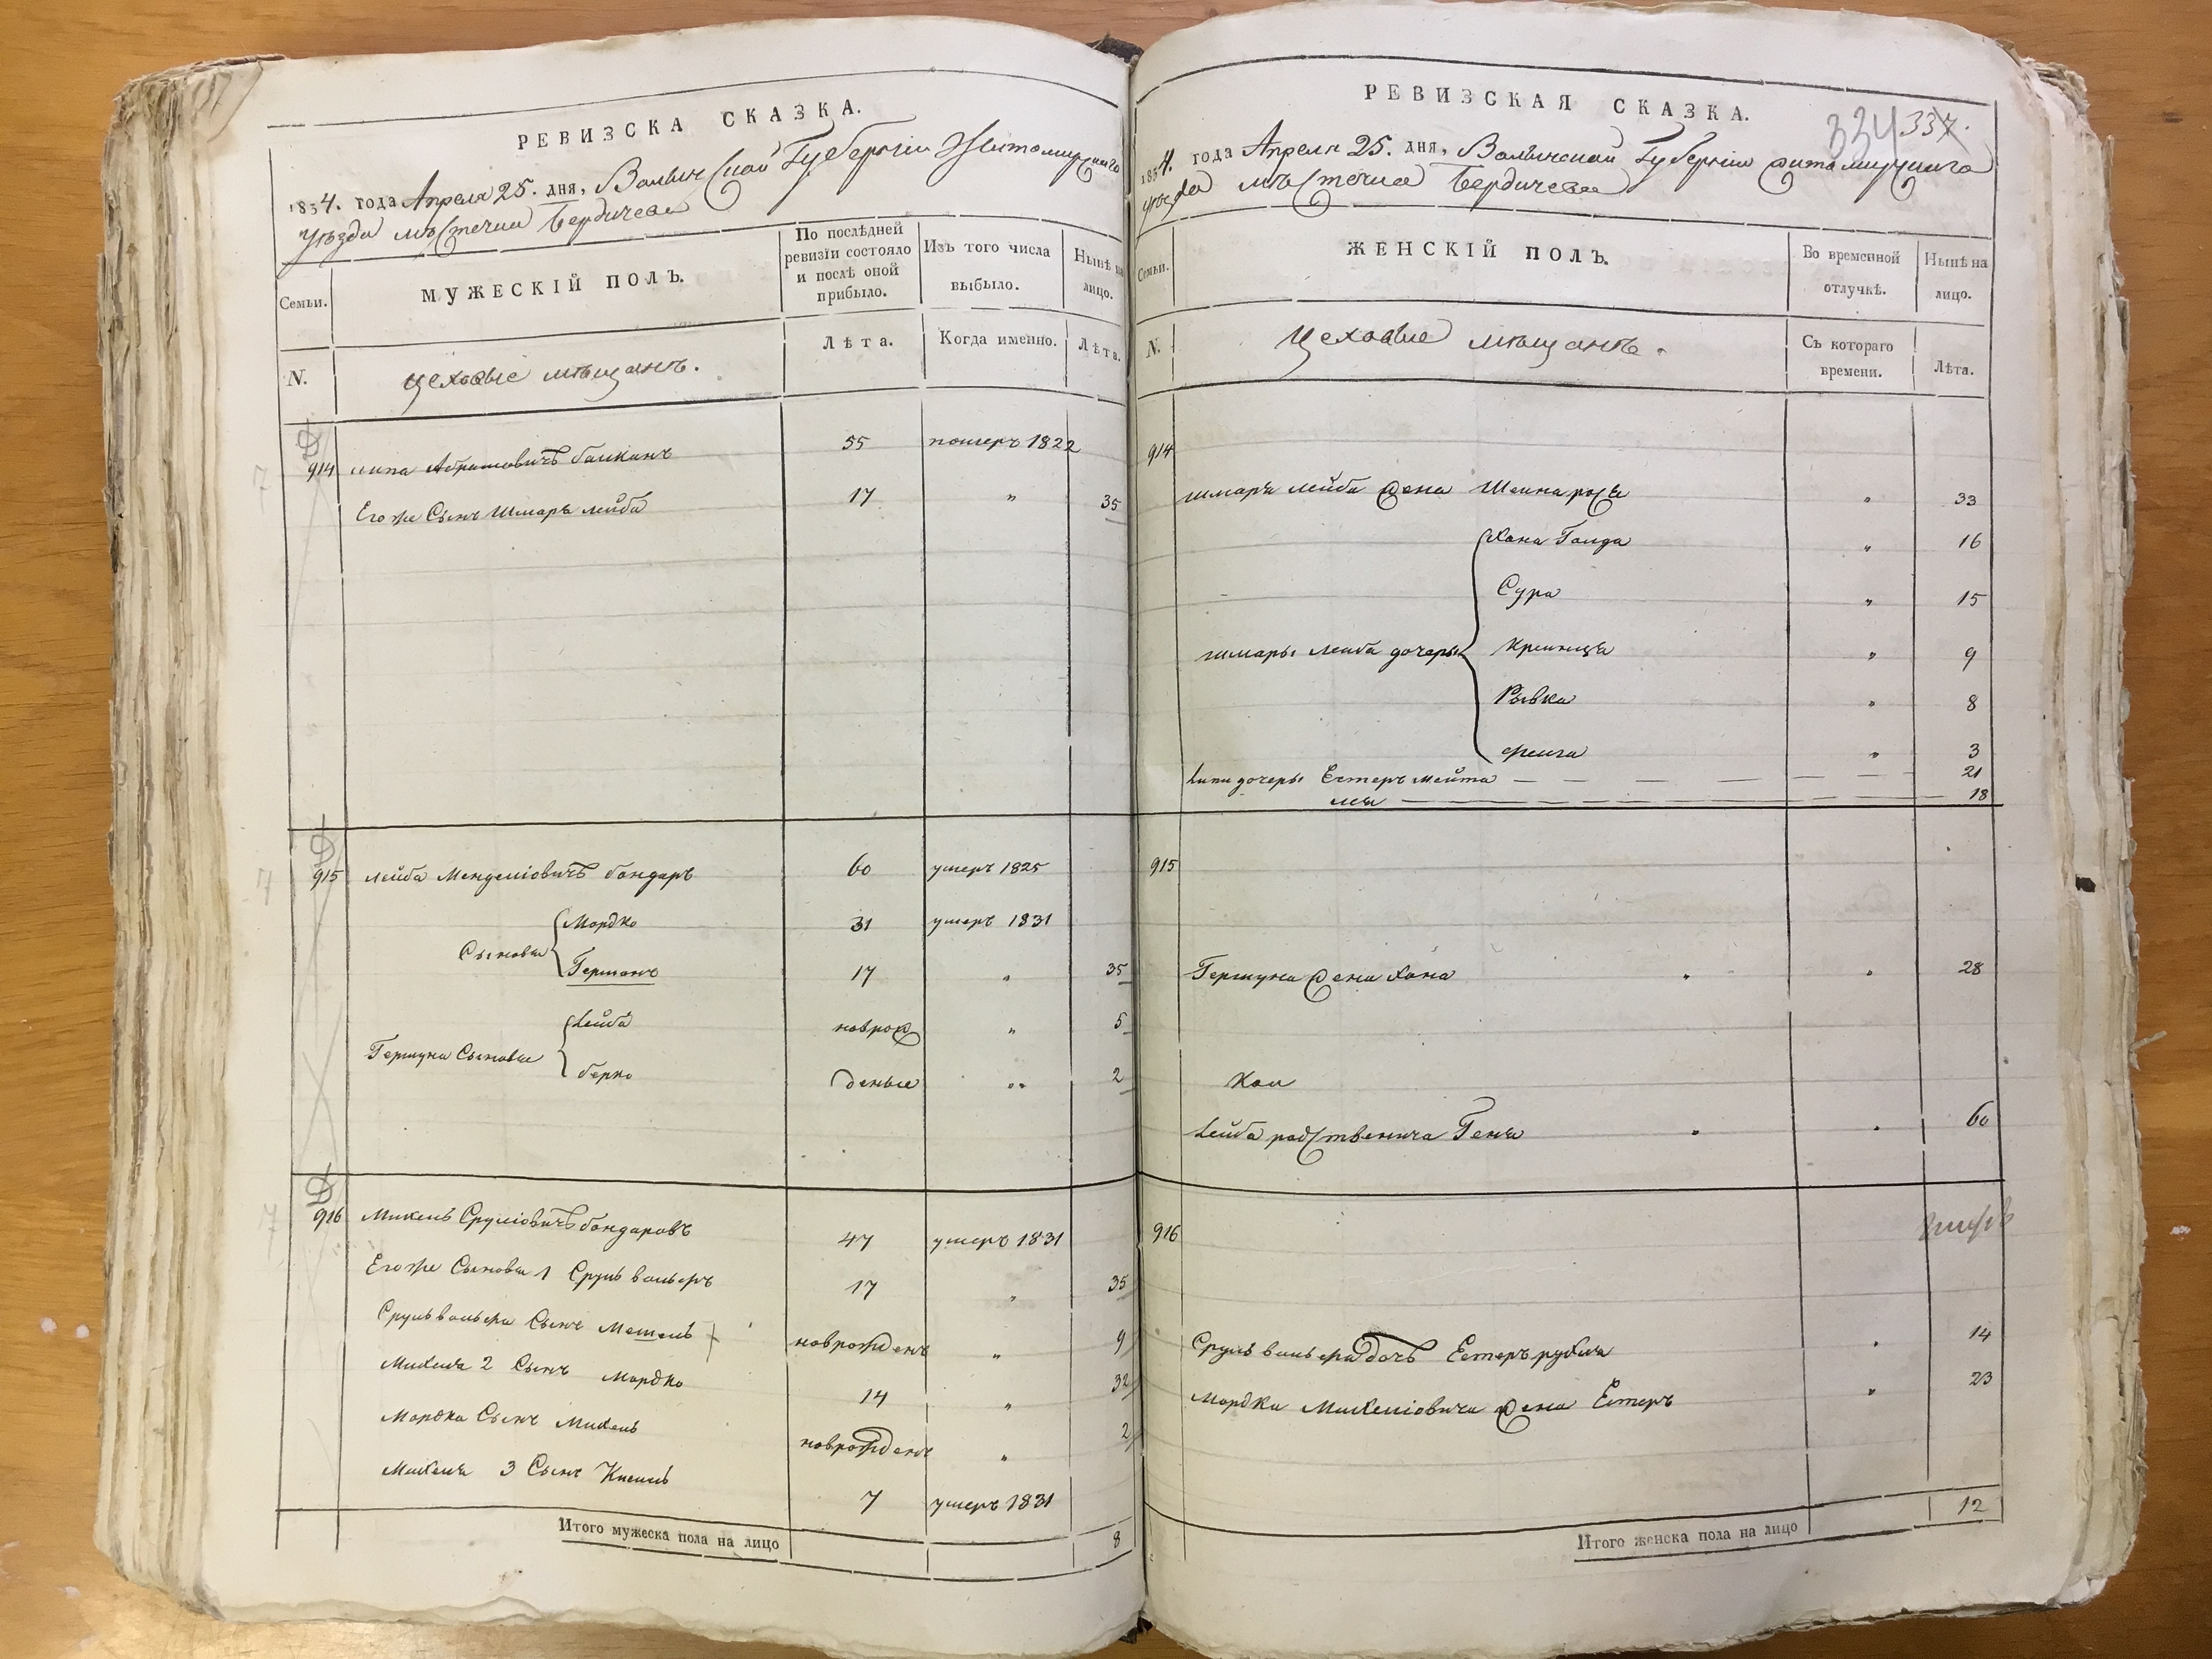 РЕВИЗСКА СКАЗКА.
1834. года Апреля 25. дня, Волынской Губернiи Житомирскаго
Уѣзда мѣстечка Бердичева
Семьи.
МУЖЕСКІЙ ПОЛЪ.
По послѣдней ревизіи состояло и послѣ оной прибыло.
Изъ того числа выбыло.
Нынѣ на лицо.
N.
Цеховые мѣщанъ.
Лѣта.
Когда именно.
Лѣта.
914 Липа Абрамовичъ 55 померъ 1822
Его же Сынъ Шмаръ Лейба 17 " 35
915 Лейба Менделiовичъ бондаръ 60 умеръ 1825
Мордко 31 умеръ 1831
Сыновья
17 " 35
Лейба новрож " 5
Гершуна Сыновья
берко деные " 2
916 Михель Срулiовичъ бондаровъ 47 умеръ 1831
Его же Сыновья 1 Сруль вольфъ 17 " 35
Сруль вольфа Сынъ новрожденъ " 9
Михеля 2 Сынъ Мордко 14 " 32
Мордка Сынъ Михель новрожденъ " 2
Михеля 3 Сынъ 7 умеръ 1831
Итого мужеска пола на лицо 8
РЕВИЗСКАЯ СКАЗКА.
334 337.
1834. года Апреля 25. дня, Волынской Губернiи Житомирскаго
уѣзда мѣстечка Бердичева
Семьи.
ЖЕНСКІЙ ПОЛЪ.
Во временной отлучкѣ.
Нынѣ на лицо.
N.
Цеховые мѣщанъ.
Съ котораго времени.
Лѣта.
914
Шмаръ Лейба жена Шейна " 33
Хана Голда " 16
Сура " 15
Шмары Лейба дочеры
Крейнця " 9
Рывка " 8
Фейга " 3
Липи дочеры Естеръ — — — — 21
Лея — — — — 18
915
Гершуна жена Хана " " 28
Лейба родственича Геня " " 60
916
Сруль вольфа дочь Естеръ рухля " 14
Мордка Михелiовича жена Естеръ " 23
Итого женска пола на лицо 12